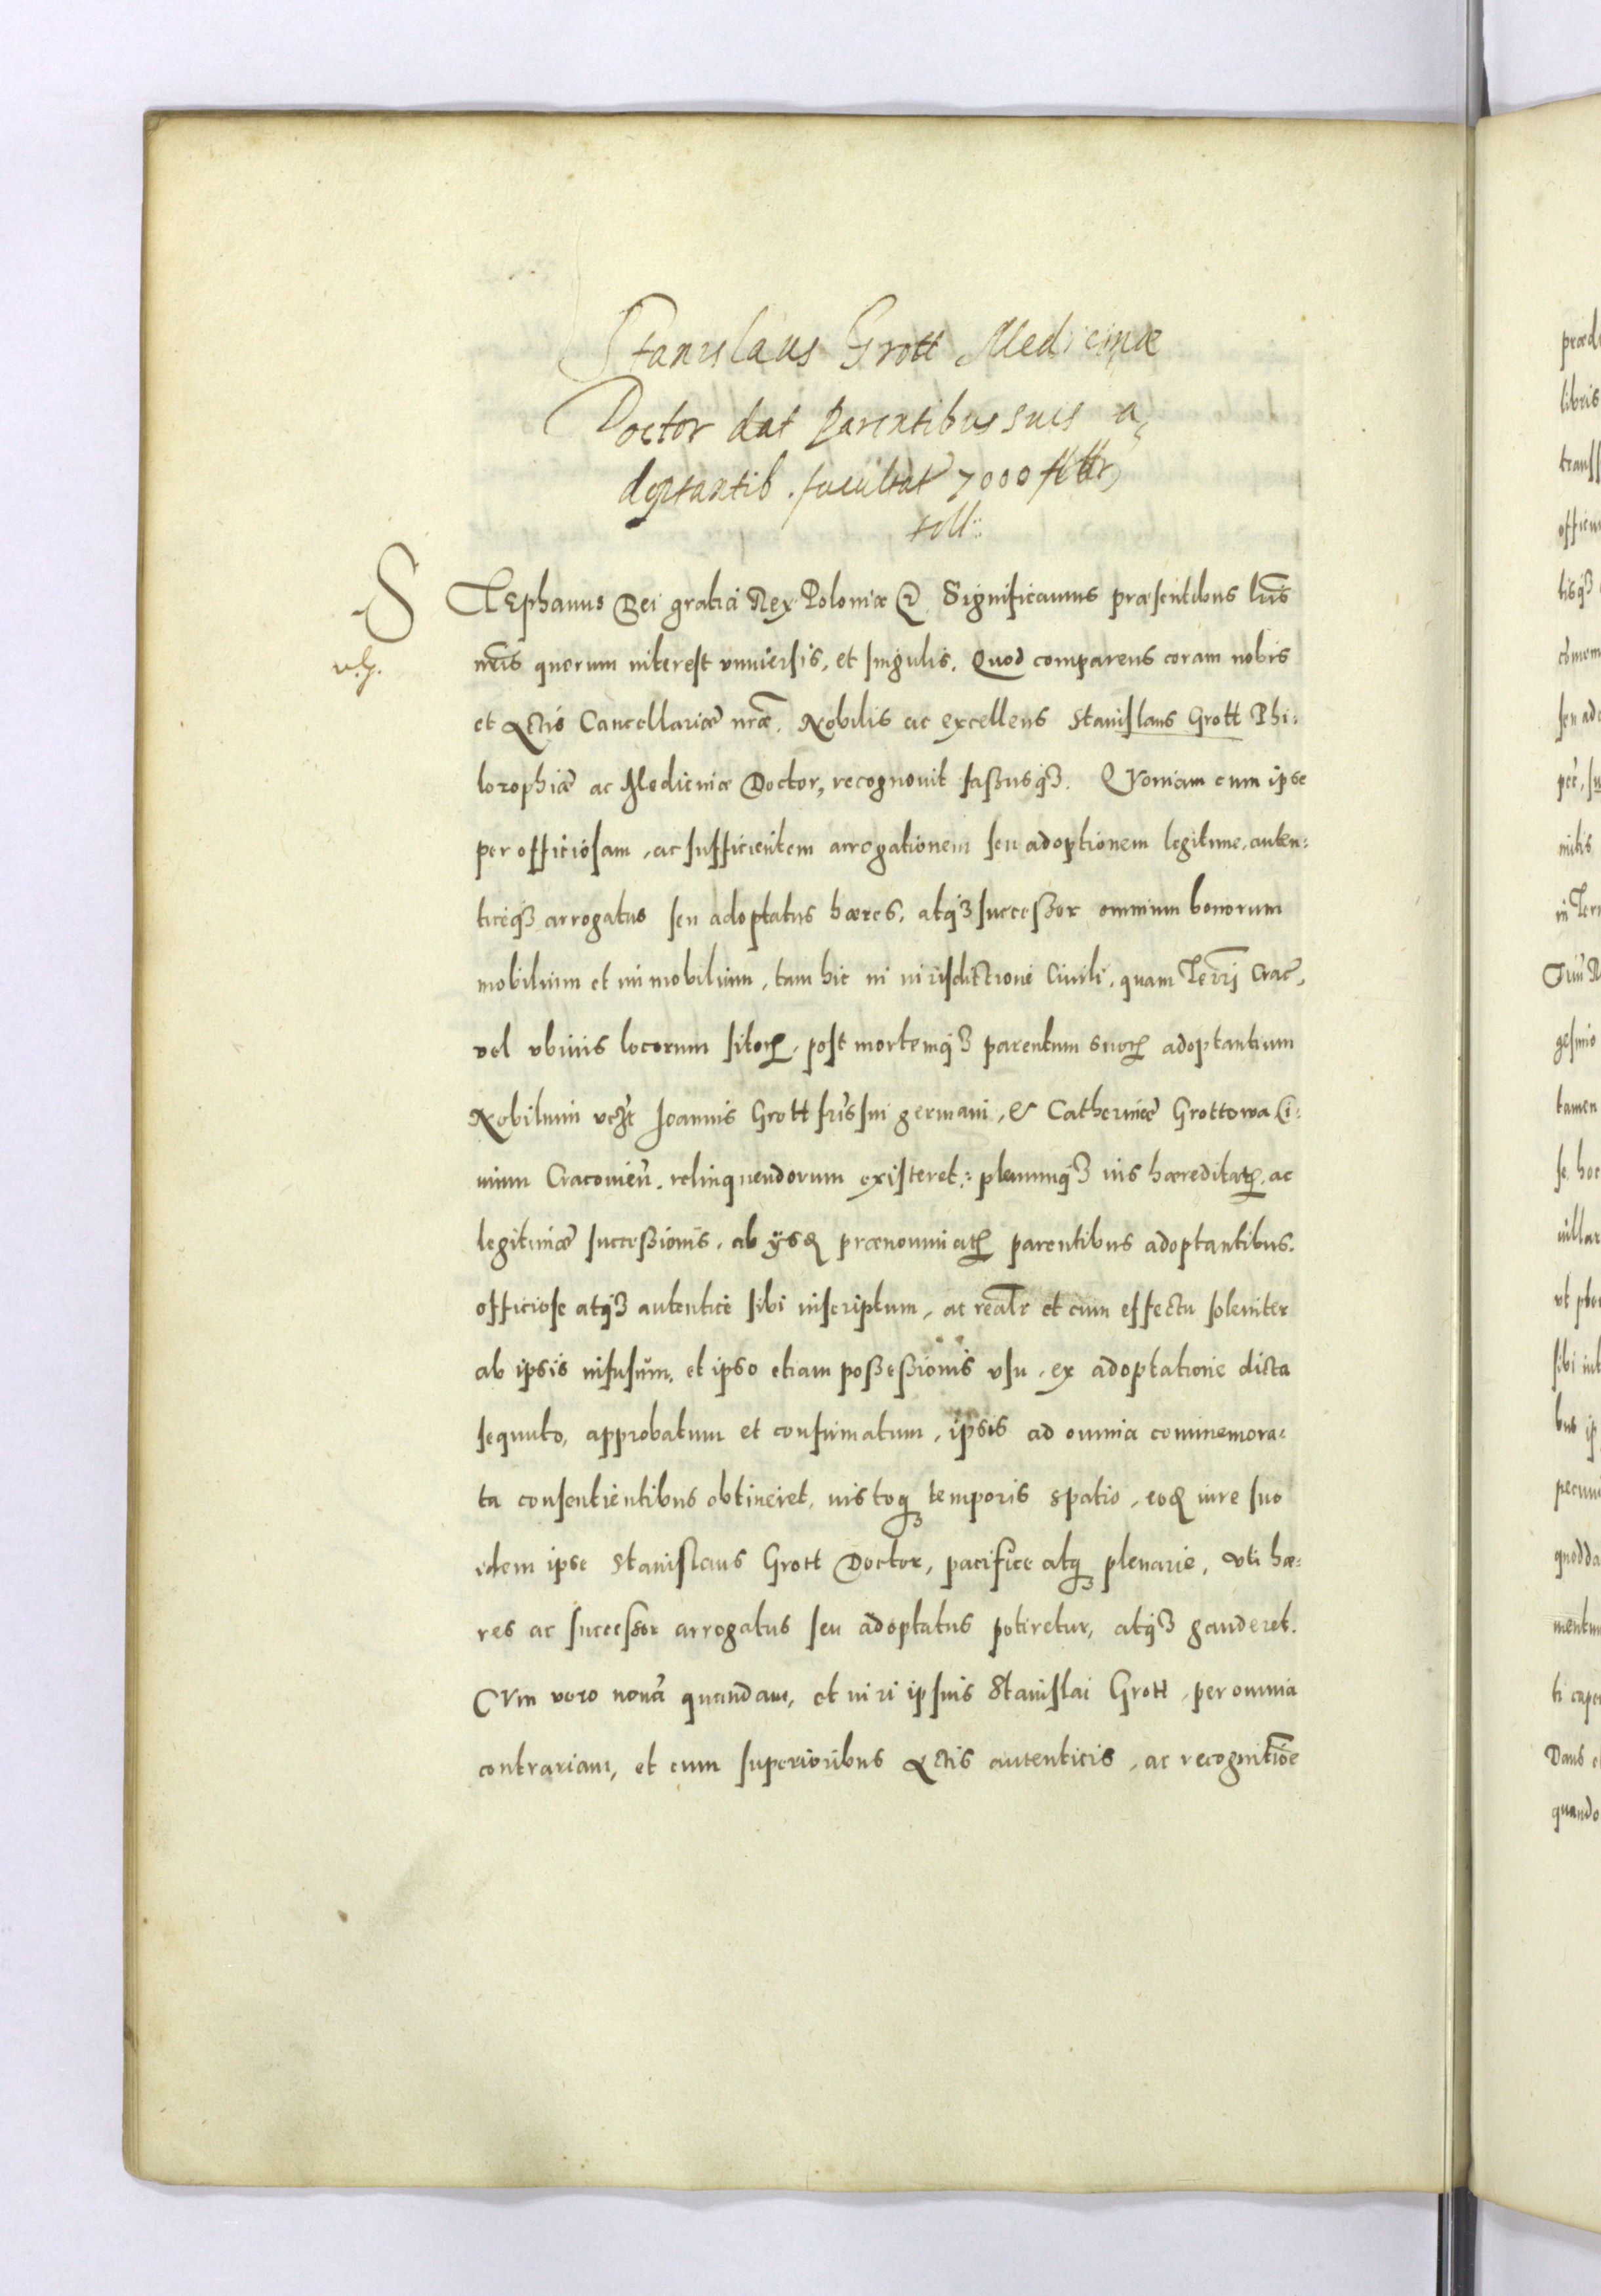 Stanislaus Grott Medicinæ
Doctor dat Parentibus suis a
doptantib. facultat 7000
STEphanus Dei gratia Rex Poloniæ &. Significamus præsentibus lris
nris quorum interest vniuersis, et singulis. Quod comparens coram nobis
et Actis Cancellariæ nræ. Nobilis ac excellens Stanislaus Grott Phi:
lozophiæ ac Medicinæ Doctor, recognouit faßusq3. QVoniam cum ipse
per officiosam, ac sufficientem arrogationem seu adoptionem legitime, auten:
ticeq3 arrogatus seu adoptatus hæres, atq3 succeßor omnium bonorum
mobilium et immobilium, tam hic in iurisdictione Ciuili, quam Terri Crac,
vel vbiuis locorum sitoꝝ, post mortemq3 parentum suoꝝ adoptantium
Nobilium vczt Joannis Grott fris sui germani, & Catherinæ Grottowa Ci:
uium Cracovien. relinquendorum existeret: plenumq3 ius hæreditatꝭ, ac
legitimæ succeßionis, ab ijsd prænominatꝭ parentibus adoptantibus.
officiose atq3 autentice sibi inscriptum, ac realr et cum effectu soleniter
ab ipsis infusum, et ipso etiam poßeßionis vsu, ex adoptatione dicta
sequuto, approbatum et confirmatum, ipsis ad omnia commemora:
ta consentientibus obtineret, iustoq3 temporis spatio, eod iure suo
idem ipse Stanislaus Grott Doctor, pacifice atq3 plenarie, vti hæ:
res ac successor arrogatus seu adoptatus potiretur, atq3 gauderet.
CVm vero nouã quandam, et iuri ipsius Stanislai Grott, per omnia
contrariam, et cum superioribus Actis autenticis, ac recognitiõe